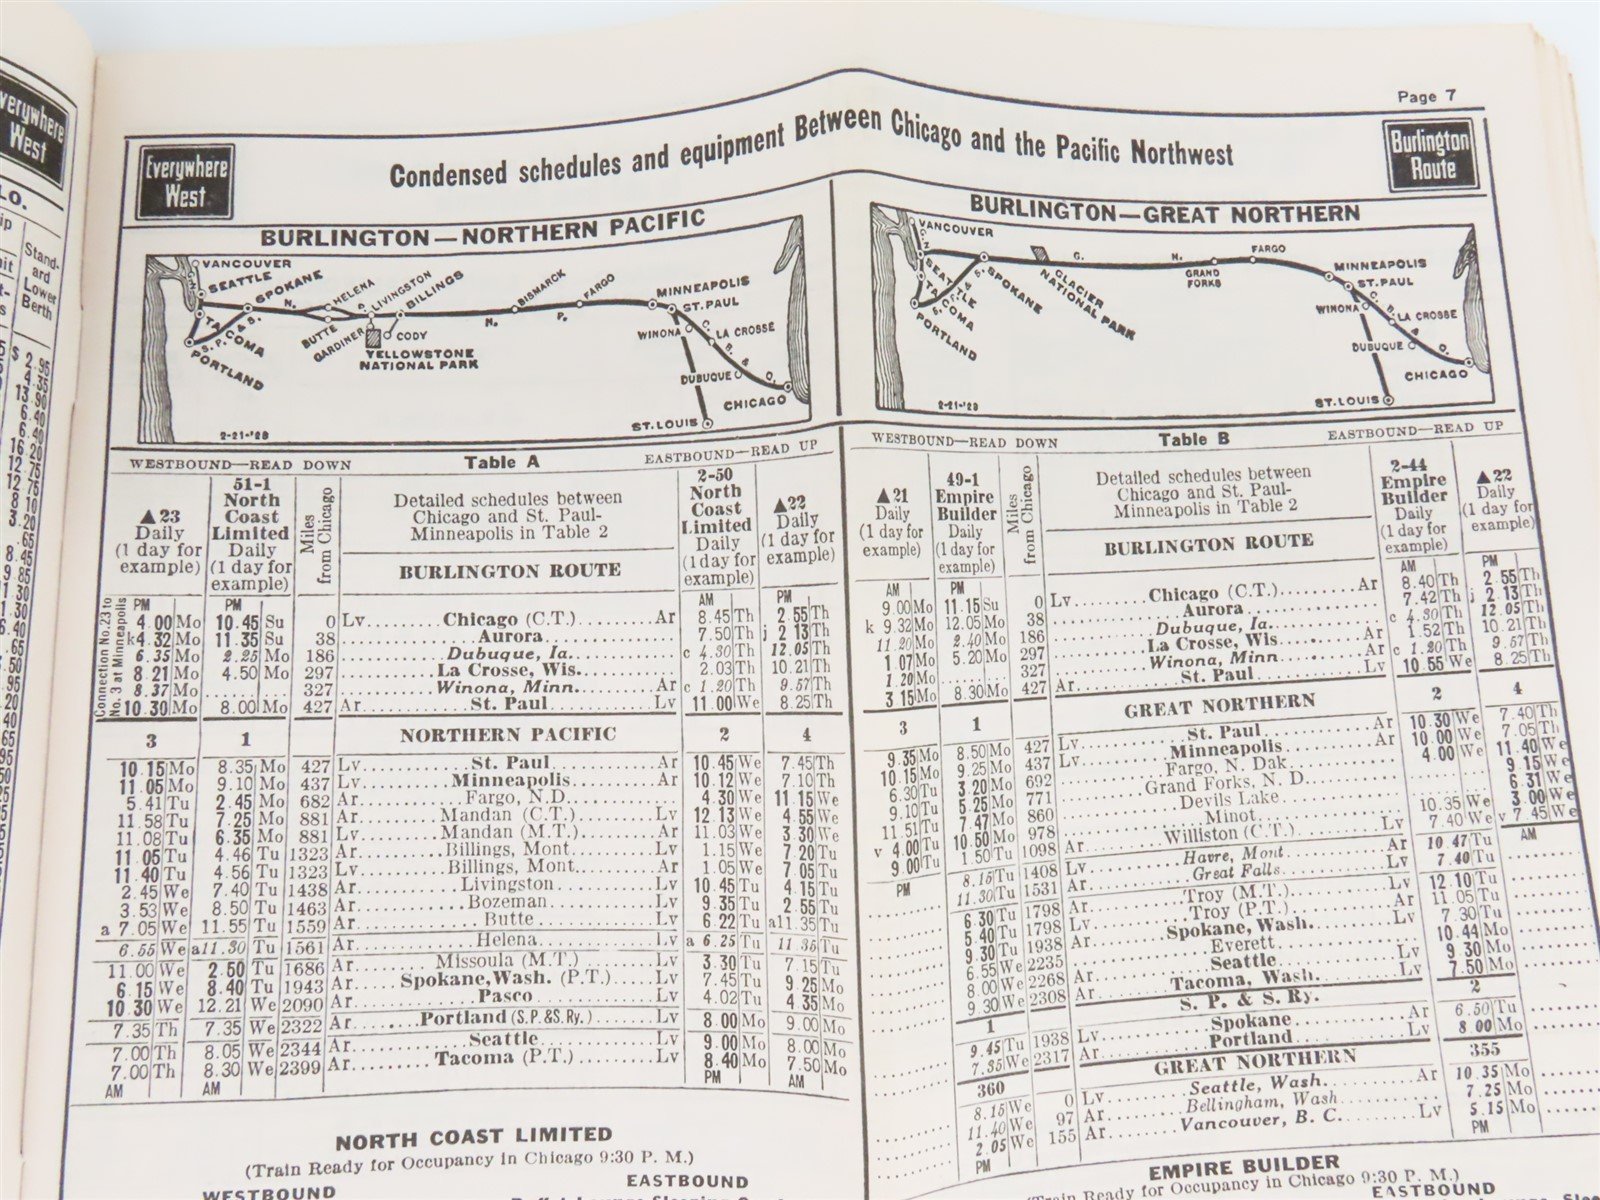 Page 7
Everywhere West
Condensed schedules and equipment Between Chicago and the Pacific Northwest
Burlington Route
BURLINGTON—NORTHERN PACIFIC
VANCOUVER
SEATTLE
SPOKANE
HELENA
LIVINGSTON
BILLINGS
BISMARCK
FARGO
MINNEAPOLIS
ST. PAUL
TACOMA
BUTTE
GARDINER
CODY
YELLOWSTONE
NATIONAL PARK
PORTLAND
WINONA
LA CROSSE
DUBUQUE
CHICAGO
ST. LOUIS
2-21-'29
BURLINGTON—GREAT NORTHERN
VANCOUVER
SEATTLE
TACOMA
SPOKANE
GLACIER
NATIONAL PARK
GRAND
FORKS
FARGO
MINNEAPOLIS
ST. PAUL
PORTLAND
WINONA
LA CROSSE
DUBUQUE
CHICAGO
ST. LOUIS
2-21-'29
WESTBOUND—READ DOWN Table A EASTBOUND—READ UP
▲23 Daily (1 day for example)
51-1 North Coast Limited Daily (1 day for example)
Miles from Chicago
Detailed schedules between
Chicago and St. Paul-
Minneapolis in Table 2
BURLINGTON ROUTE
2-50 North Coast Limited Daily (1 day for example)
▲22 Daily (1 day for example)
Connection No. 23 to No. 3 at Minneapolis
PM PM AM PM
4.00 Mo 10.45 Su 0 Lv. Chicago (C.T.) Ar 8.45 Th 2.55 Th
k4.32 Mo 11.35 Su 38 Aurora 7.50 Th j 2 13 Th
6.35 Mo 2.25 Mo 186 Dubuque, Ia. c 4.30 Th 12.05 Th
8.21 Mo 4.50 Mo 297 La Crosse, Wis. 2.03 Th 10.21 Th
8.37 Mo 327 Winona, Minn. Ar c 1.20 Th 9.57 Th
10.30 Mo 8.00 Mo 427 Ar. St. Paul Lv 11.00 We 8.25 Th
3 1 NORTHERN PACIFIC 2 4
10.15 Mo 8.35 Mo 427 Lv. St. Paul Ar 10.45 We 7.45 Th
11.05 Mo 9.10 Mo 437 Lv. Minneapolis Ar 10.12 We 7.10 Th
5.41 Tu 2.45 Mo 682 Ar. Fargo, N.D. 4.30 We 11.15 We
11.58 Tu 7.25 Mo 881 Ar. Mandan (C.T.) Lv 12.13 We 4.55 We
11.08 Tu 6.35 Mo 881 Lv. Mandan (M.T.) Ar 11.03 We 3.30 We
11.05 Tu 4.46 Tu 1323 Ar. Billings, Mont. Lv 1.15 We 7 20 Tu
11.40 Tu 4.56 Tu 1323 Lv. Billings, Mont. Ar 1.05 We 7.05 Tu
2.45 We 7.40 Tu 1438 Ar. Livingston Lv 10.45 Tu 4.15 Tu
3.53 We 8.50 Tu 1463 Ar. Bozeman Lv 9.35 Tu 2.55 Tu
a 7.05 We 11.55 Tu 1559 Ar. Butte Lv 6.22 Tu a11.35 Tu
6.55 We a11.30 Tu 1561 Ar. Helena Lv a 6.25 Tu 11.35 Tu
11.00 We 2.50 Tu 1686 Ar. Missoula (M.T.) Lv 3.30 Tu 7.15 Tu
6.15 We 8.40 Tu 1943 Ar. Spokane, Wash. (P.T.) Lv 7.45 Tu 9.25 Mo
10.30 We 12.21 We 2090 Ar. Pasco Lv 4.02 Tu 4.35 Mo
7.35 Th 7.35 We 2322 Ar. Portland (S.P.&S.Ry.) Lv 8.00 Mo 9.00 Mo
7.00 Th 8.05 We 2344 Ar. Seattle Lv 9.00 Mo 8.00 Mo
7.00 Th 8.30 We 2399 Ar. Tacoma (P.T.) Lv 8.40 Mo 7.50 Mo
AM AM PM AM
NORTH COAST LIMITED
(Train Ready for Occupancy in Chicago 9:30 P. M.)
WESTBOUND EASTBOUND
WESTBOUND—READ DOWN Table B EASTBOUND—READ UP
▲21 Daily (1 day for example)
49-1 Empire Builder Daily (1 day for example)
Miles from Chicago
Detailed schedules between
Chicago and St. Paul-
Minneapolis in Table 2
BURLINGTON ROUTE
2-44 Empire Builder Daily (1 day for example)
▲22 Daily (1 day for example)
AM PM AM PM
9.00 Mo 11.15 Su 0 Lv. Chicago (C.T.) Ar 8.40 Th 2.55 Th
k 9.32 Mo 12.05 Mo 38 Aurora 7.42 Th j 2.13 Th
11.20 Mo 2.40 Mo 186 Dubuque, Ia. c 4.30 Th 12.05 Th
1 07 Mo 5.20 Mo 297 La Crosse, Wis. Ar 1.52 Th 10.21 Th
1.20 Mo 327 Winona, Minn. Ar c 1.20 Th 9.57 Th
3 15 Mo 8.30 Mo 427 Ar. St. Paul Lv 10.55 We 8.25 Th
3 1 GREAT NORTHERN 2 4
9.35 Mo 8.50 Mo 427 Lv. St. Paul Ar 10.30 We 7.40 Th
10.15 Mo 9.25 Mo 437 Lv. Minneapolis Ar 10.00 We 7.05 Th
6.30 Tu 3.20 Mo 692 Fargo, N. Dak. 4.00 We 11.40 We
9.10 Tu 5.25 Mo 771 Grand Forks, N. D. 9.15 We
11.51 Tu 7.47 Mo 860 Devils Lake 6.31 We
v 4.00 Tu 10.50 Mo 978 Minot 10.35 We 3.00 We
9.00 Tu 1.50 Tu 1098 Ar. Williston (C.T.) Lv 7.40 We v 7.45 We
PM AM
8.15 Tu 1408 Lv. Havre, Mont. Ar 10.47 Tu
11.30 Tu 1531 Ar. Great Falls Lv 7.40 Tu
6.30 Tu 1798 Ar. Troy (M.T.) Lv 12.10 Tu
5.40 Tu 1798 Lv. Troy (P.T.) Ar 11.05 Tu
9.30 Tu 1938 Ar. Spokane, Wash. Lv 7.30 Tu
6.55 We 2235 Everett 10.44 Mo
8.00 We 2268 Ar. Seattle Lv 9.30 Mo
9.30 We 2308 Ar. Tacoma, Wash. Lv 7.50 Mo
1 S. P. & S. Ry. 2
9.45 Tu 1938 Lv. Spokane 6.50 Tu
7.35 We 2317 Ar. Portland Lv 8 00 Mo
360 GREAT NORTHERN 355
8.15 We 0 Lv. Seattle, Wash. Ar 10.35 Mo
11.40 We 97 Ar. Bellingham, Wash. 7.25 Mo
2.05 We 155 Ar. Vancouver, B. C. Lv 5.15 Mo
PM PM
EMPIRE BUILDER
(Train Ready for Occupancy in Chicago 9:30 P. M.)
EASTBOUND